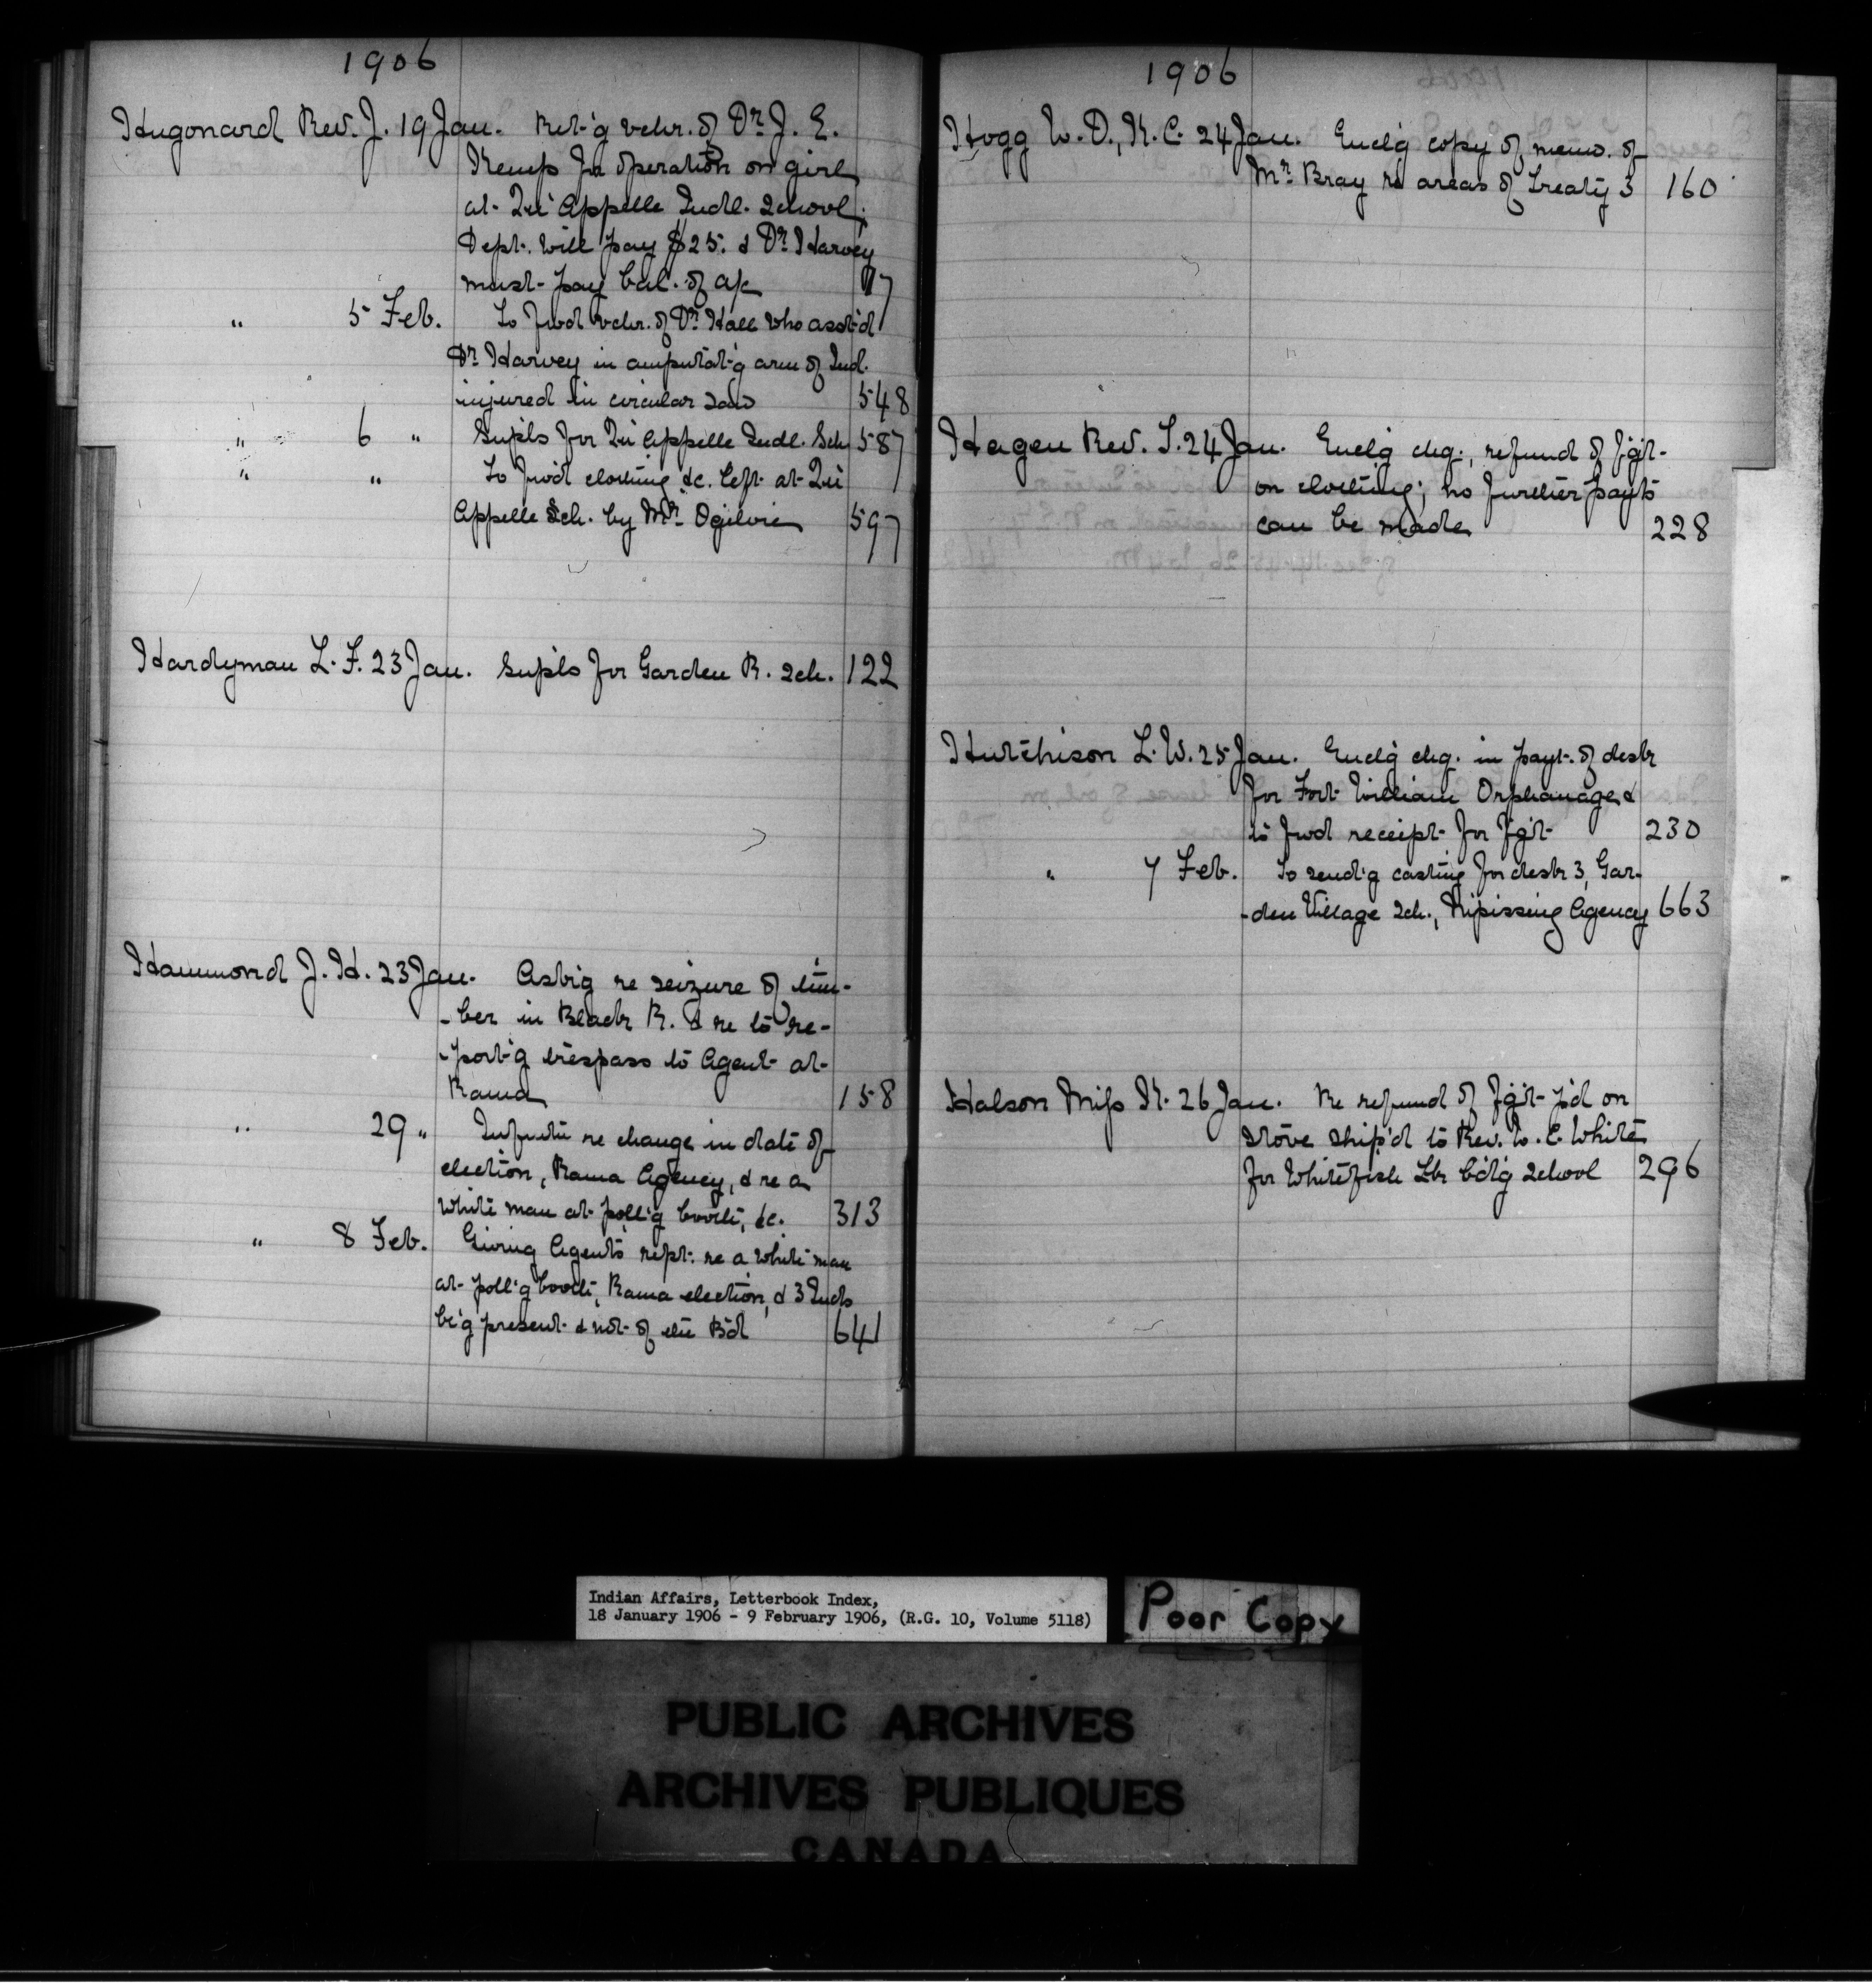 1906
Hugonard Rev. J. 19 Jan. Ret'g vchr. of Dr J. E.
Kemp for operation on girl
at Qu'Appelle Indl. School;
Dept. will pay $25. & Dr Harvey
must pay bal. of a/c 17
" 5 Feb. To fwd vchr. of Dr Hall who asst'd
Dr Harvey in amputat'g arm of Ind.
injured in circular saw 548
" 6 " Supls for Qu'Appelle Indl. Sch 587
" " To fwd clothing &c. left at Qu'
Appelle Sch. by Mr. Ogilvie 597
Hardyman L. F. 23 Jan. Supls for Garden R. Sch. 122
Hammond J. H. 23 Jan. Ask'g re seizure of tim-
-ber in Black R. & re to re-
-port'g trespass to Agent at
Rama 158
" 29 " re change in date of
election, Rama Agency, & re a
white man at poll'g booth, &c. 313
" 8 Feb. Giving Agent's rept. re a white man
at poll'g booth, Rama election, & 3 Inds
be'g present & not of the Bd 641
1906
Hogg W. D., K. C. 24 Jan. Encl'g copy of memo. of
Mr. Bray re areas of Treaty 3 160
Hagen Rev. S. 24 Jan. Encl'g chq., refund of f'g't
on clothing; no further payts
can be made 228
Hutchison L. W. 25 Jan. Encl'g chq. in payt. of desks
for Fort William Orphanage &
to fwd receipt for f'g't 230
" 7 Feb. To send'g casting for desk 3, Gar-
-den Village Sch., Nipissing Agency 663
Halson Miss K. 26 Jan. Re refund of f'g't p'd on
stove ship'd to Rev. W. C. White
for Whitefish Lk b'd'g School 296
Indian Affairs, Letterbook Index,
18 January 1906 - 9 February 1906, (R.G. 10, Volume 5118)
Poor Copy
PUBLIC ARCHIVES
ARCHIVES PUBLIQUES
CANADA